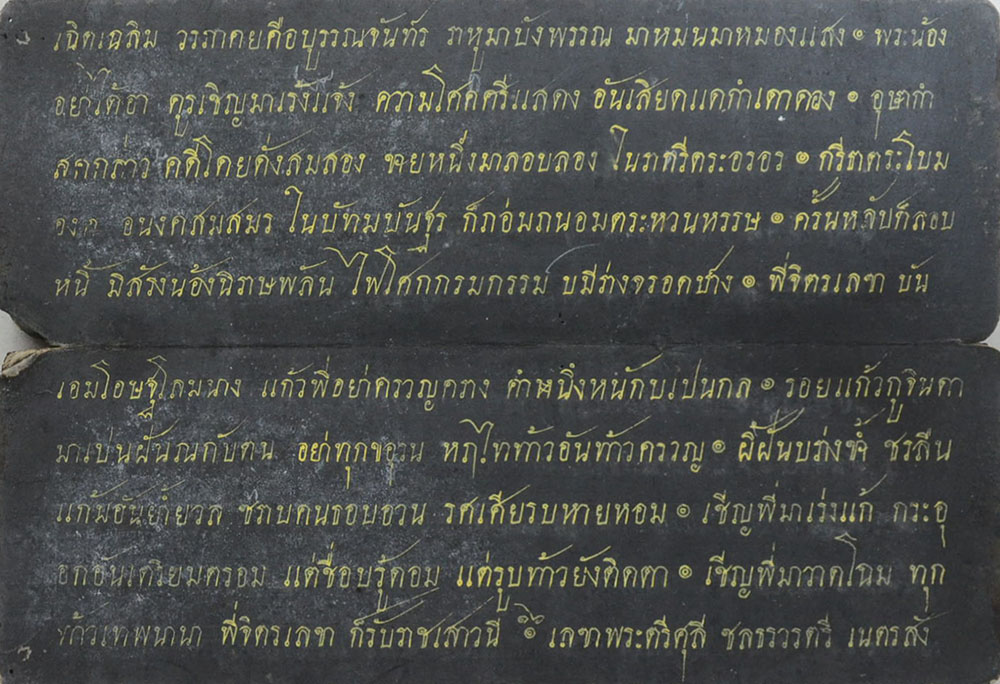 เฉิดเฉลิม วรรภาคยคือบูรรณจันทร ราหูมาบังพรรณ มาหมนมาหมองแสง ๏ พระน้อง
อย่าได้อา ดูรเชิญมาแร้งแจ้ง ความโศกศรีแสดง อันเสียดแดกำเดาดวง ๏ อุษากำ
สดกล่าว คดีโดยดั่งสมสอง ชายหนึ่งมาลอบลอง ในราตรีตระอรอร ๏ กรีฑาตระโบม
องค อนงคสมสมร ในบัทมบันชูร ก็กอ่มถนอมตระหวนหรรษ ๏ ครั้นหลับก็ลอบ
หนี มิสั่งน้องนิราษพลัน ไฟโศกกรมกรรม์ บมีร่างจรอดปาง ๏ พี่จิตรเลขา บัน
เอมโอษฐโลมนาง แก้วพี่อย่าครวญคราง คำนึงหนักบเปนกล ๏ รอยแก้วกูจินดา
มาเปนฝันในกับตน อย่าทุกข หฤไทท้าวอันท้าวครวญ ๏ ผี้ฝันบร่างช้ำ ชรลืน
แก้มอันย้ำยวล ชาบคนธอบอวน รศเสียรบหายหอม ๏ เชีญพี่มาเร่งแก้ กระอุ
อกอันเตรียมตรอม แต่ชื่อบรู้ดอม แต่รูบท้าวยังติดตา ๏ เชีญพี่มาวาดโฉม ทุก
ท้าวเทพนานา พี่จิตรเลขา ก็รับราชเสาวนี ๏ เลขาพระตรีศุลี ชลธรวรตรี เนตรสัง